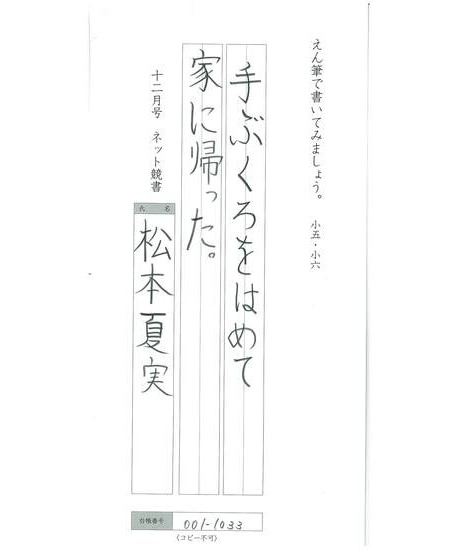 えん筆で書いてみましょう。　小五・小六
手ぶくろをはめて
家に帰った。
十二月号　ネット競書
氏名
松本夏実
台帳番号
001-1033
（コピー不可）